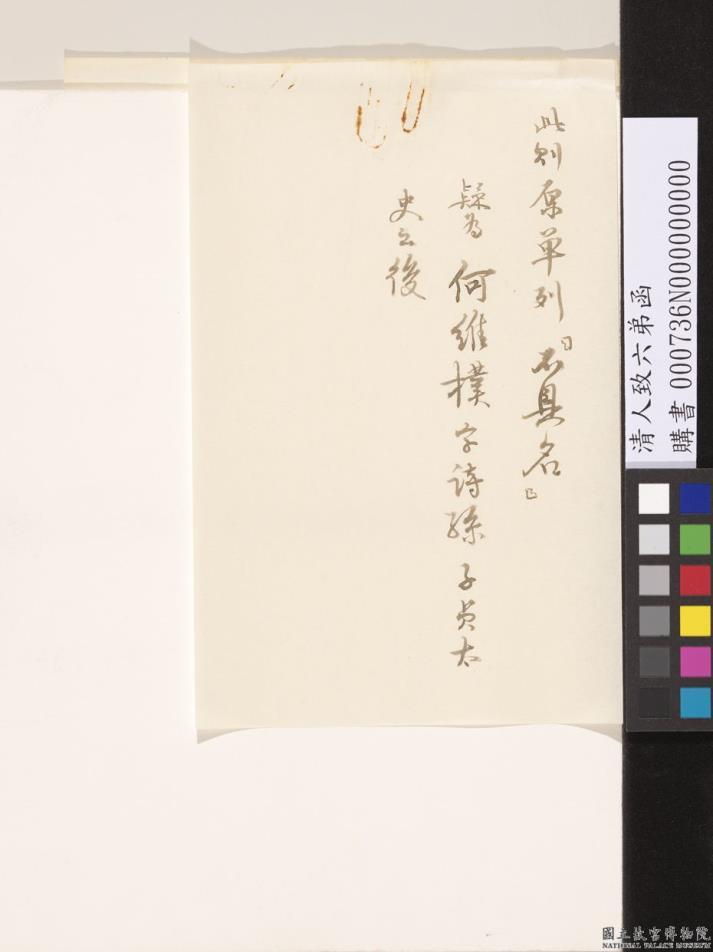 此則原單列「不具名」
疑為何維樸字詩孫子貞太
史之後
清人致六弟函
購書 000736N000000000
國立故宮博物院
NATIONAL PALACE MUSEUM